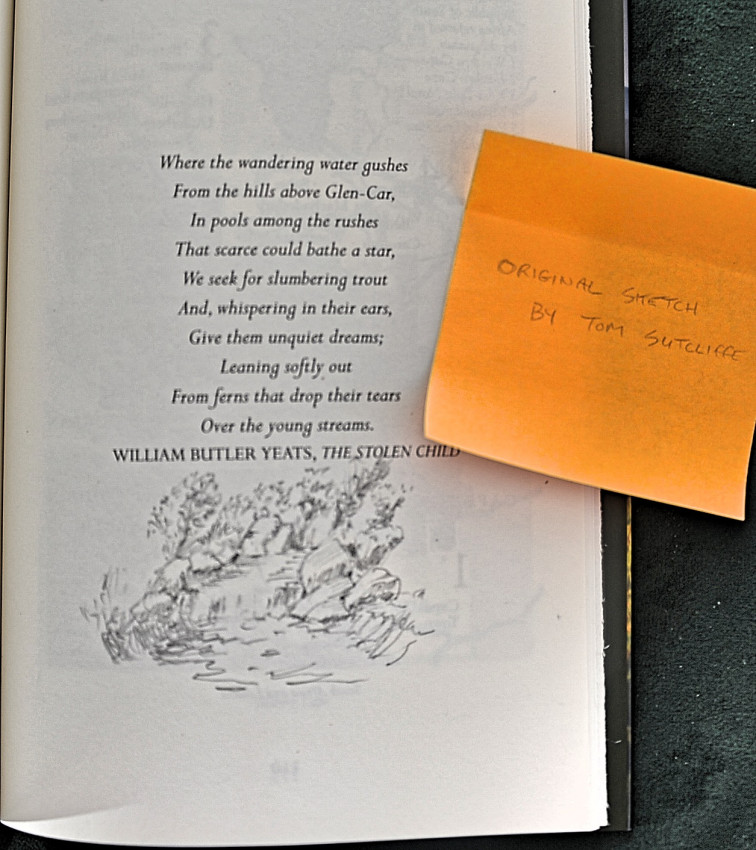 Where the wandering water gushes
From the hills above Glen-Car,
In pools among the rushes
That scarce could bathe a star,
We seek for slumbering trout
And, whispering in their ears,
Give them unquiet dreams;
Leaning softly out
From ferns that drop their tears
Over the young streams.
WILLIAM BUTLER YEATS, THE STOLEN CHILD
ORIGINAL SKETCH
BY TOM SUTCLIFFE